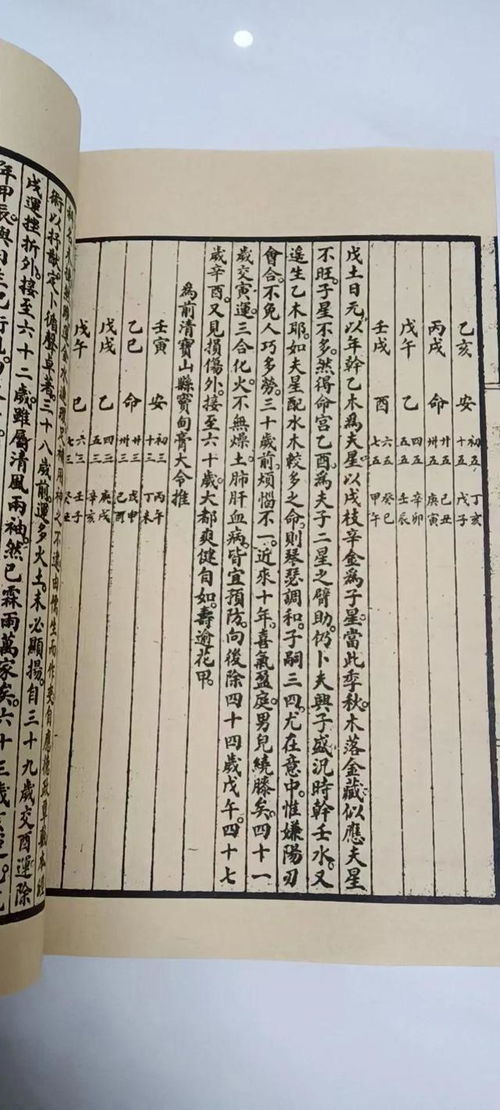 乙亥 安 初五 十五 丁亥 戊子
丙戌 命 廿五 卅五 己丑 庚寅
戊午 乙 四五 五五 辛卯 壬辰
壬戌 酉 六五 七五 癸巳 甲午
戊土日元以年幹乙木為夫星以戌枝辛金為子星當此季秋木落金藏似應夫星
不旺子星不多然得命宮乙酉為夫子二星之臂助仍卜夫興子盛況時幹壬水又
遙生乙木耶如夫星配水木較多之命則琴瑟調和子嗣三四尤在意中惟嫌陽刃
會合不免人巧多勞三十歲前煩惱不一近來十年喜氣盈庭男兒繞膝矣四十一
歲交寅運三合化火不無燥土肺肝血病皆宜預防向後除四十四歲戊午四十七
歲辛酉又見損傷外接至六十歲大都爽健自如壽逾花甲
為前清寶山縣竇甸膏大令推
壬寅 安 初三 十三 丙午 丁未
乙巳 命 廿三 卅三 戊申 己酉
戊戌 乙 四三 五三 庚戌 辛亥
戊午 巳 六三 七三 壬子 癸丑
術以行酬定卜循聲卓著三十八歲前運多火土未必顯揚自三十九歲交酉運除
戌運挫折外接至六十二歲雖屬清風兩袖然已霖雨萬家矣六十三歲
年甲辰